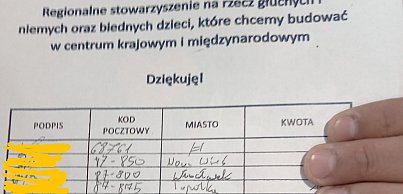 Regionalne stowarzyszenie na rzecz głuchych i
niemych oraz biednych dzieci, które chcemy budować
w centrum krajowym i międzynarodowym
Dziękuję!
PODPIS KOD POCZTOWY MIASTO KWOTA
68761
87-850
87-800 Włocławek
87-875